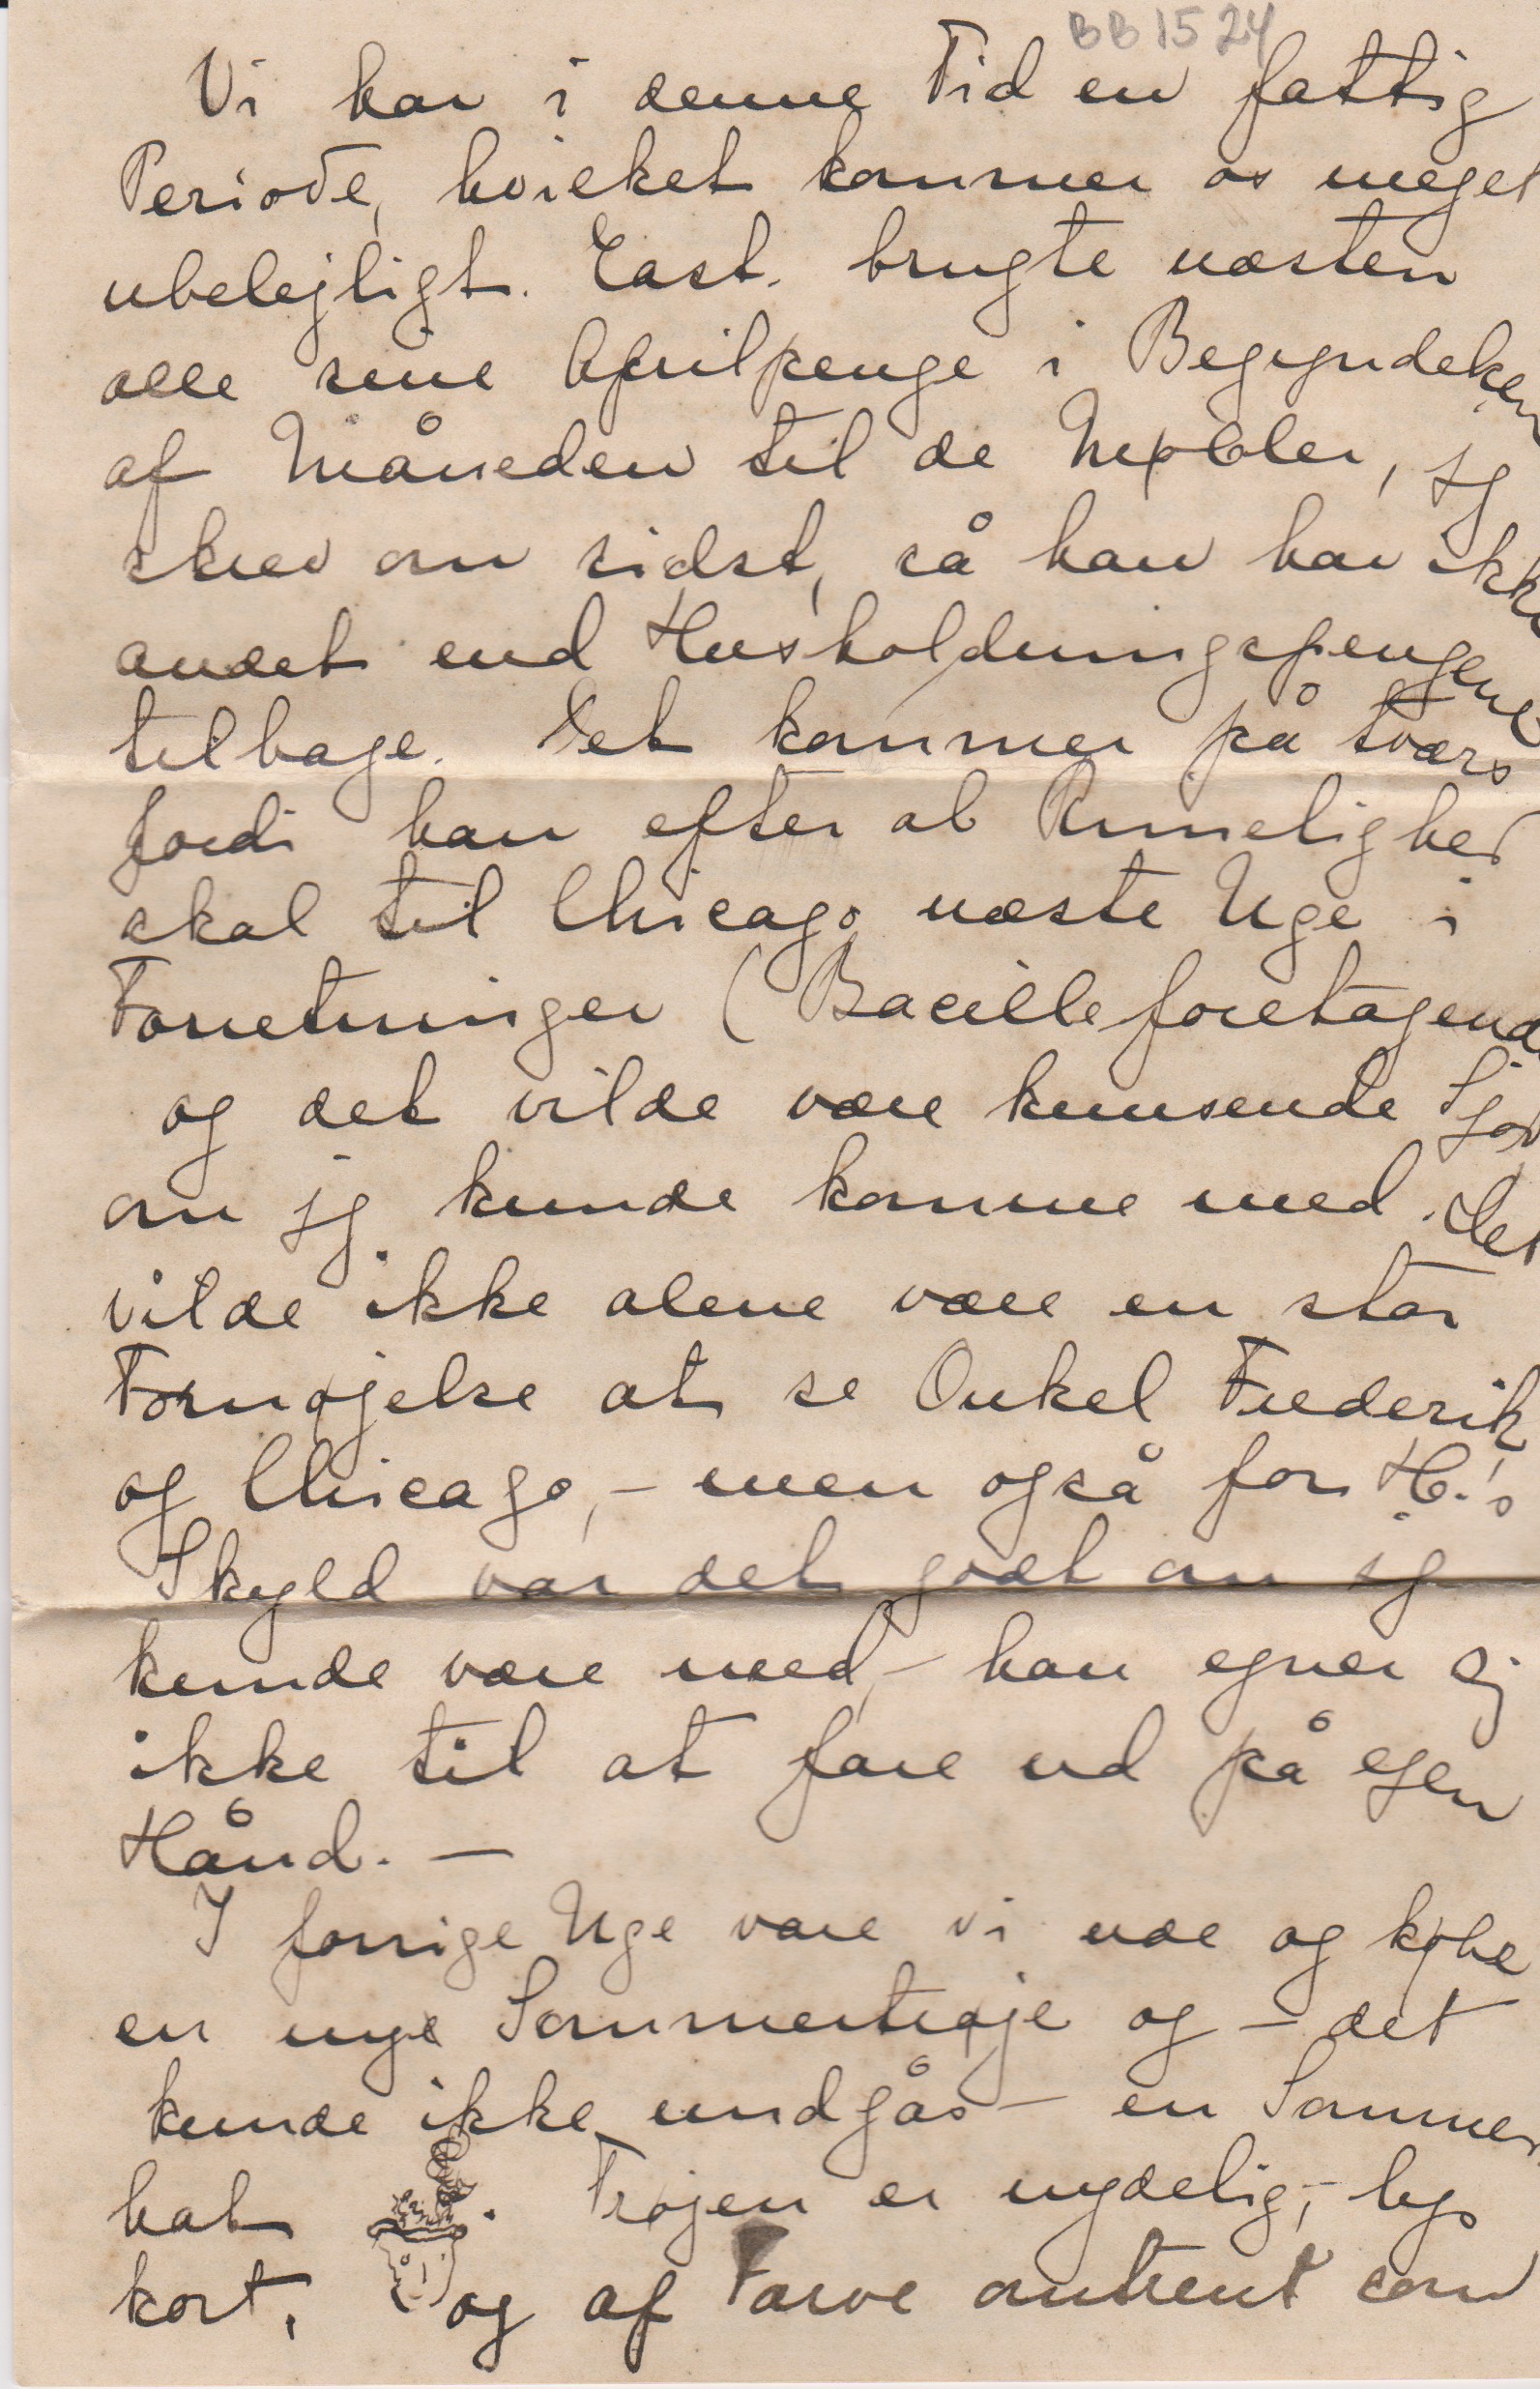 BB 1524
Vi har i denne Tid en fattig
Periode, hvilket kommer os meget
ubelejligt. East. brugte næsten
alle sine Aprilpenge i Begyndelsen
af Måneden til de Møbler, jeg
skrev om sidst, så han har ikke
andet end Husholdningspengene
tilbage. Det kommer på tværs
fordi han efter al Rimelighed
skal til Chicago næste Uge i
Forretninger (Bacilleforetagende
og det vilde være knusende Sjov
om jeg kunde komme med. Det
vilde ikke alene være en stor
Fornøjelse at se Onkel Frederik
og Chicago, – men også for H.'s
Skyld var det godt om jeg
kunde være med, – han egner sig
ikke til at fare ud på egen
Hånd. –
I forrige Uge vare vi ude og købe
en nye Sommertrøje og – det
kunde ikke undgås – en Sommer
hat . Trøjen er nydelig, – lys
kort, og af Farve omtrent som